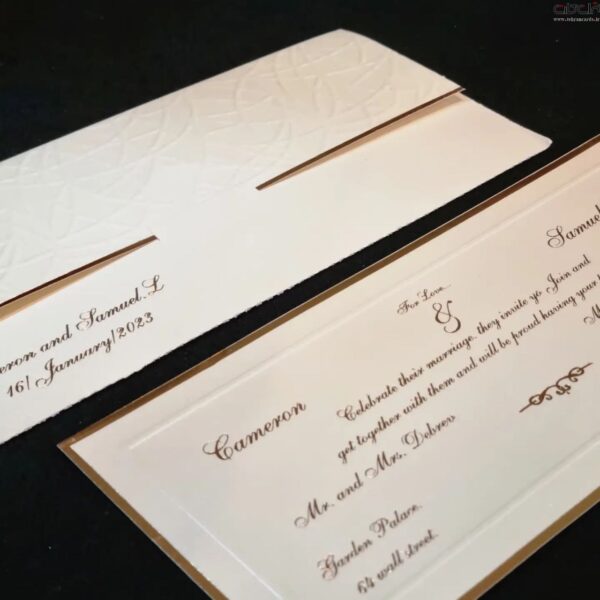 eron and Samuel.L
16/ January/2023
For Love
&
Samuel
Cameron
Celebrate their marriage. they invite yo Join and
get together with them and will be proud having your
Mr. and Mrs. Debrews
Garden Palace.
64 wall street.